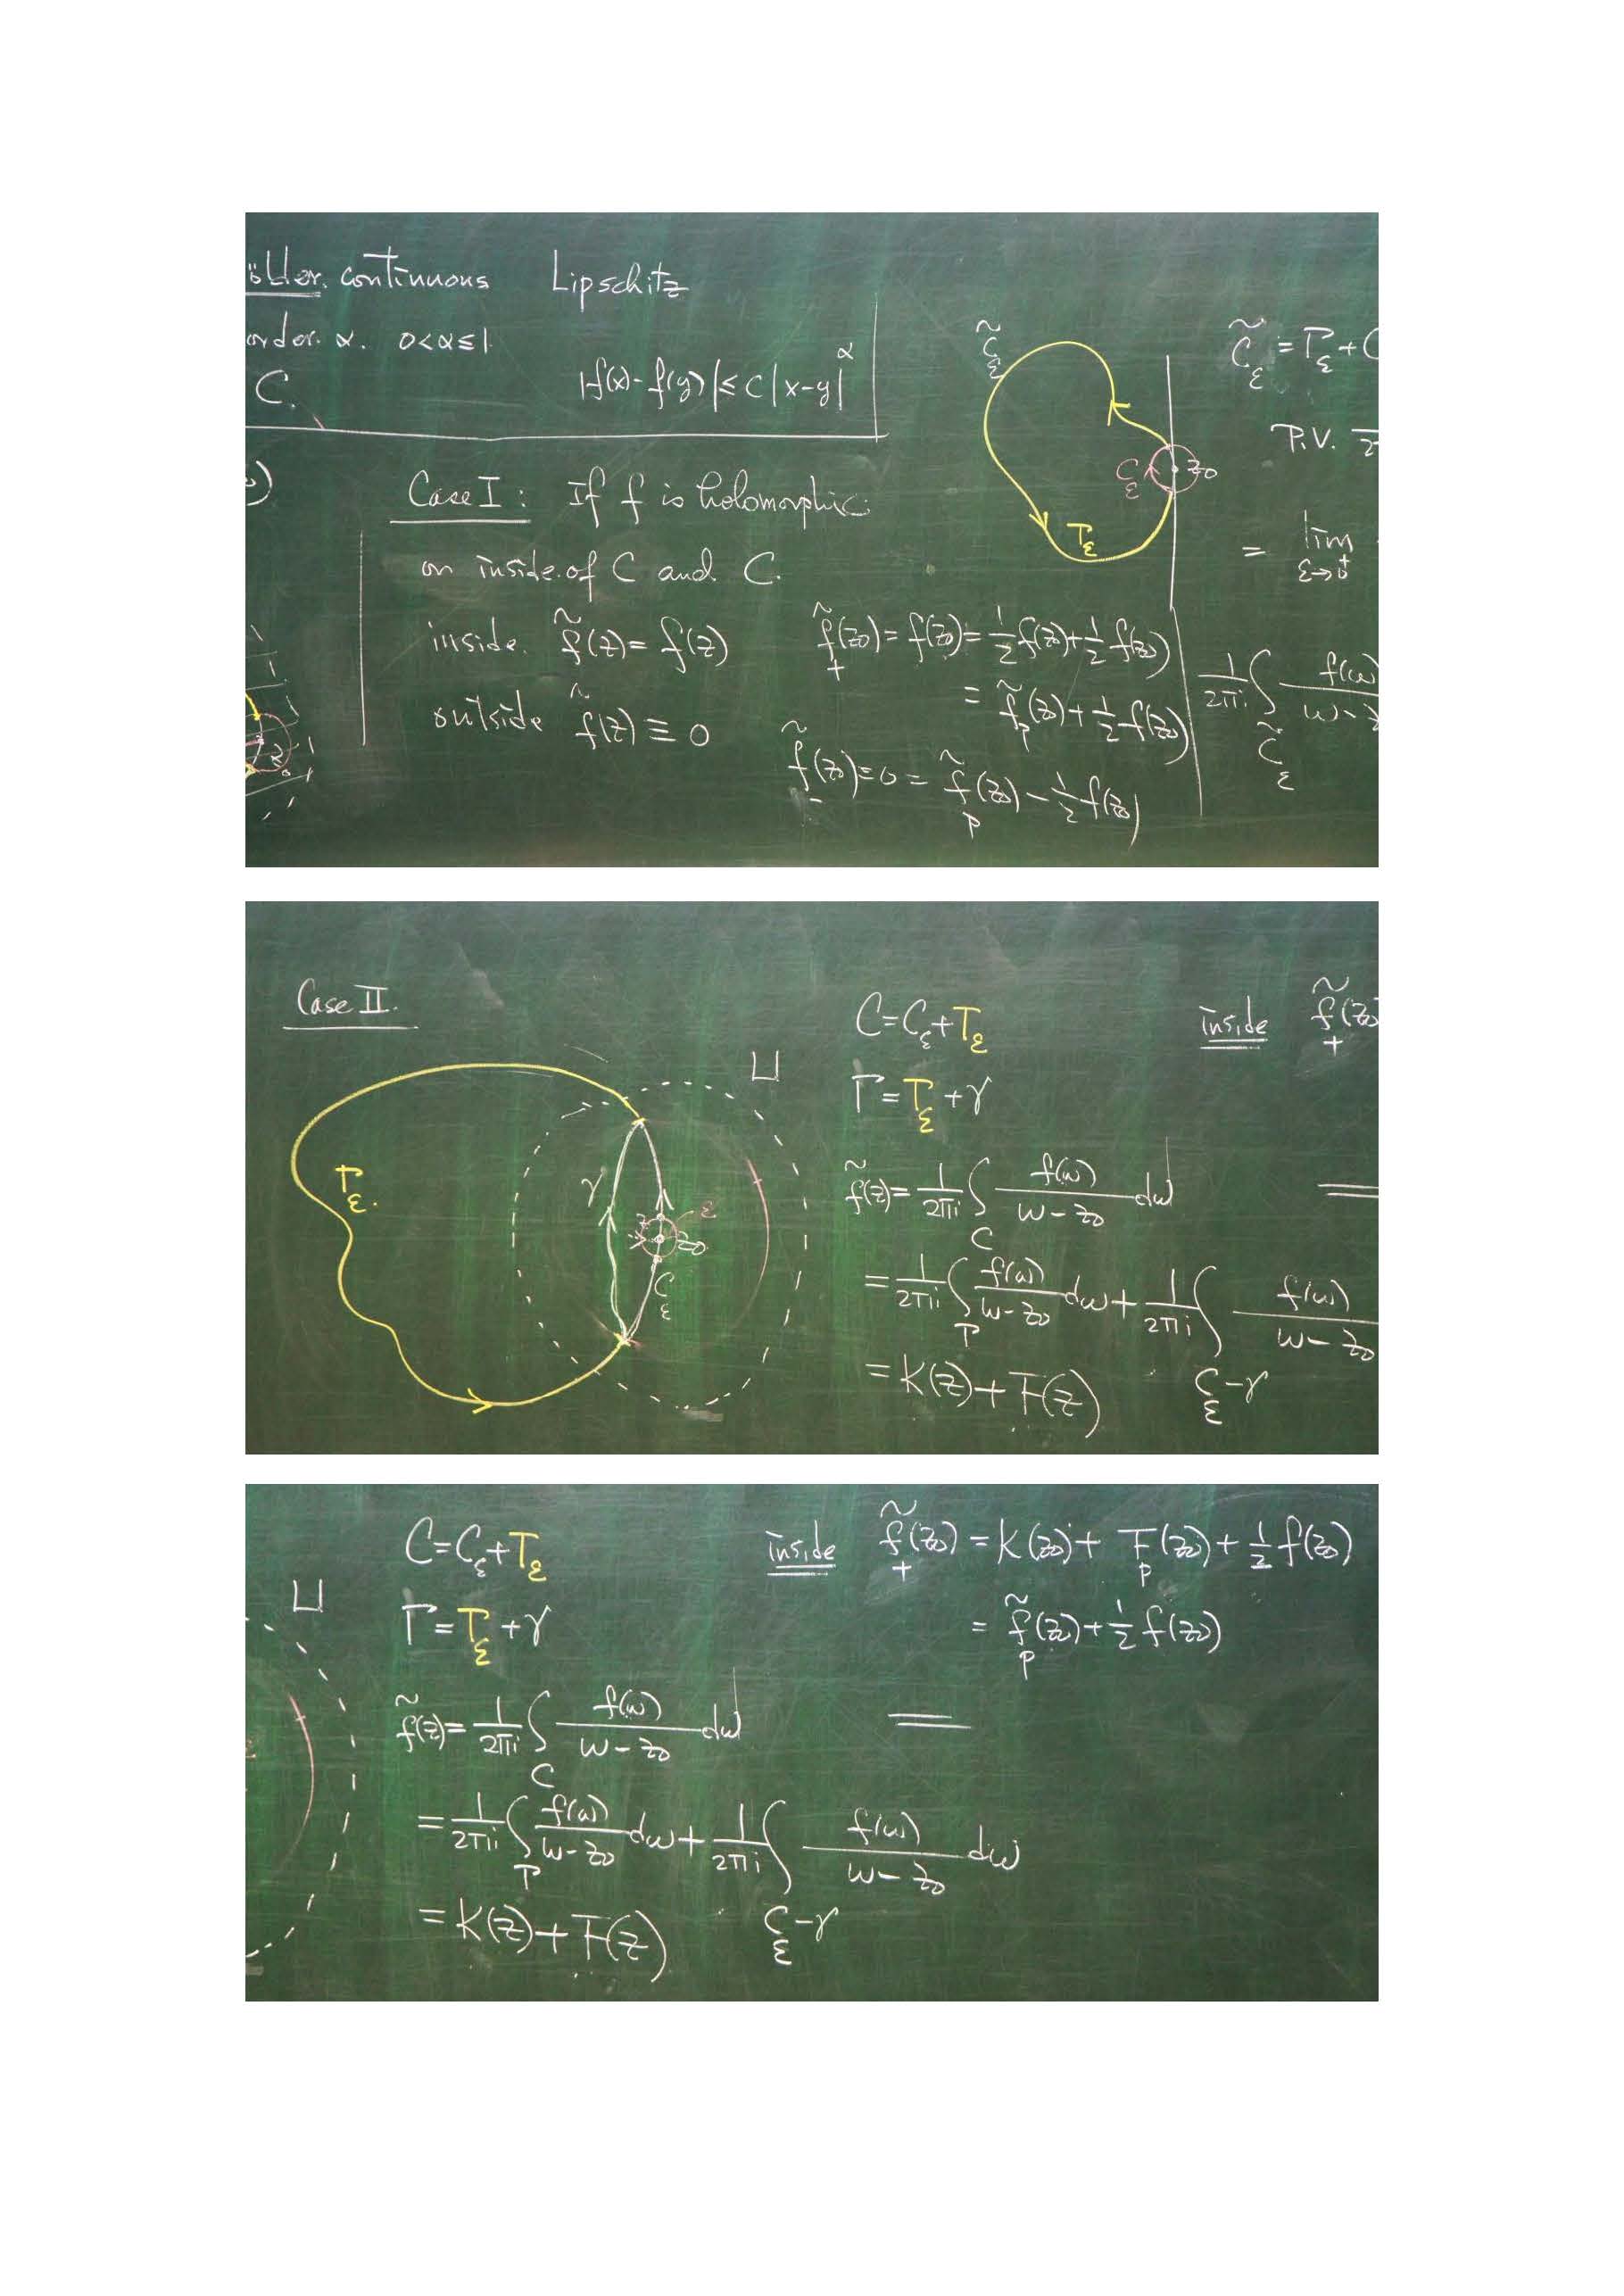 ölder. continuous Lipschitz
order α. 0<α≤1
C. |f(x)-f(y)|≤C|x-y|^α
Case I: If f is holomorphic
on inside of C and C.
inside f̃(z)=f(z)
outside f̃(z)≡0
f̃₊(z₀)=f(z₀)=½f(z₀)+½f(z₀)
=f̃_p(z₀)+½f(z₀)
f̃₋(z₀)=0=f̃_p(z₀)-½f(z₀)
C̃_ε
C_ε z₀
Γ_ε
C̃_ε=Γ_ε+C
P.V.
= lim ε→0⁺
1/2πi ∫_C̃_ε f(ω)/ω-z
Case II.
Γ_ε.
U
γ
ε
z z₀
C_ε
C=C_ε+Γ_ε
Γ=Γ_ε+γ
f̃(z)=1/2πi ∫_C f(ω)/ω-z₀ dω
=1/2πi ∫_Γ f(ω)/ω-z₀ dω+1/2πi ∫_C_ε-γ f(ω)/ω-z₀
=K(z)+F(z)
inside f̃₊(z₀)
C=C_ε+Γ_ε
U
Γ=Γ_ε+γ
f̃(z)=1/2πi ∫_C f(ω)/ω-z₀ dω
=1/2πi ∫_Γ f(ω)/ω-z₀ dω+1/2πi ∫_C_ε-γ f(ω)/ω-z₀ dω
=K(z)+F(z)
inside f̃₊(z₀)=K(z₀)+F_p(z₀)+½f(z₀)
=f̃_p(z₀)+½f(z₀)